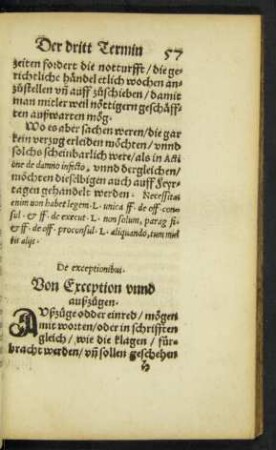 Der dritt Termin 57
zeiten fordert die notturfft/ die ge⸗
richtliche håndel etlich wochen an⸗
zůstellen vñ auff zůschieben/ damit
man mitler weil nöttigern geschåff⸗
ten außwarten mög.
Wo es aber sachen weren/ die gar
kein verzug erleiden möchten/ vnnd
solchs scheinbarlich wert/ als in Acti
one de damno infecto, vnnd dergleichen/
möchten dieselbigen auch auff Feyr⸗
tagen gehandelt werden. Necessitas
enim non habet legem. L. unica ff. de off. con⸗
sul. & ff. de execut. L. non solum, parag. fi
& ff. de off. proconsul. L. aliquando, tum
De exceptionibus.
Von Exception vnnd
außzügen.
AVßzüge odder einred/ mögen
mit worten/ oder in schrifften
gleich/ wie die klagen/ für⸗
bracht werden/ vñ sollen geschehen